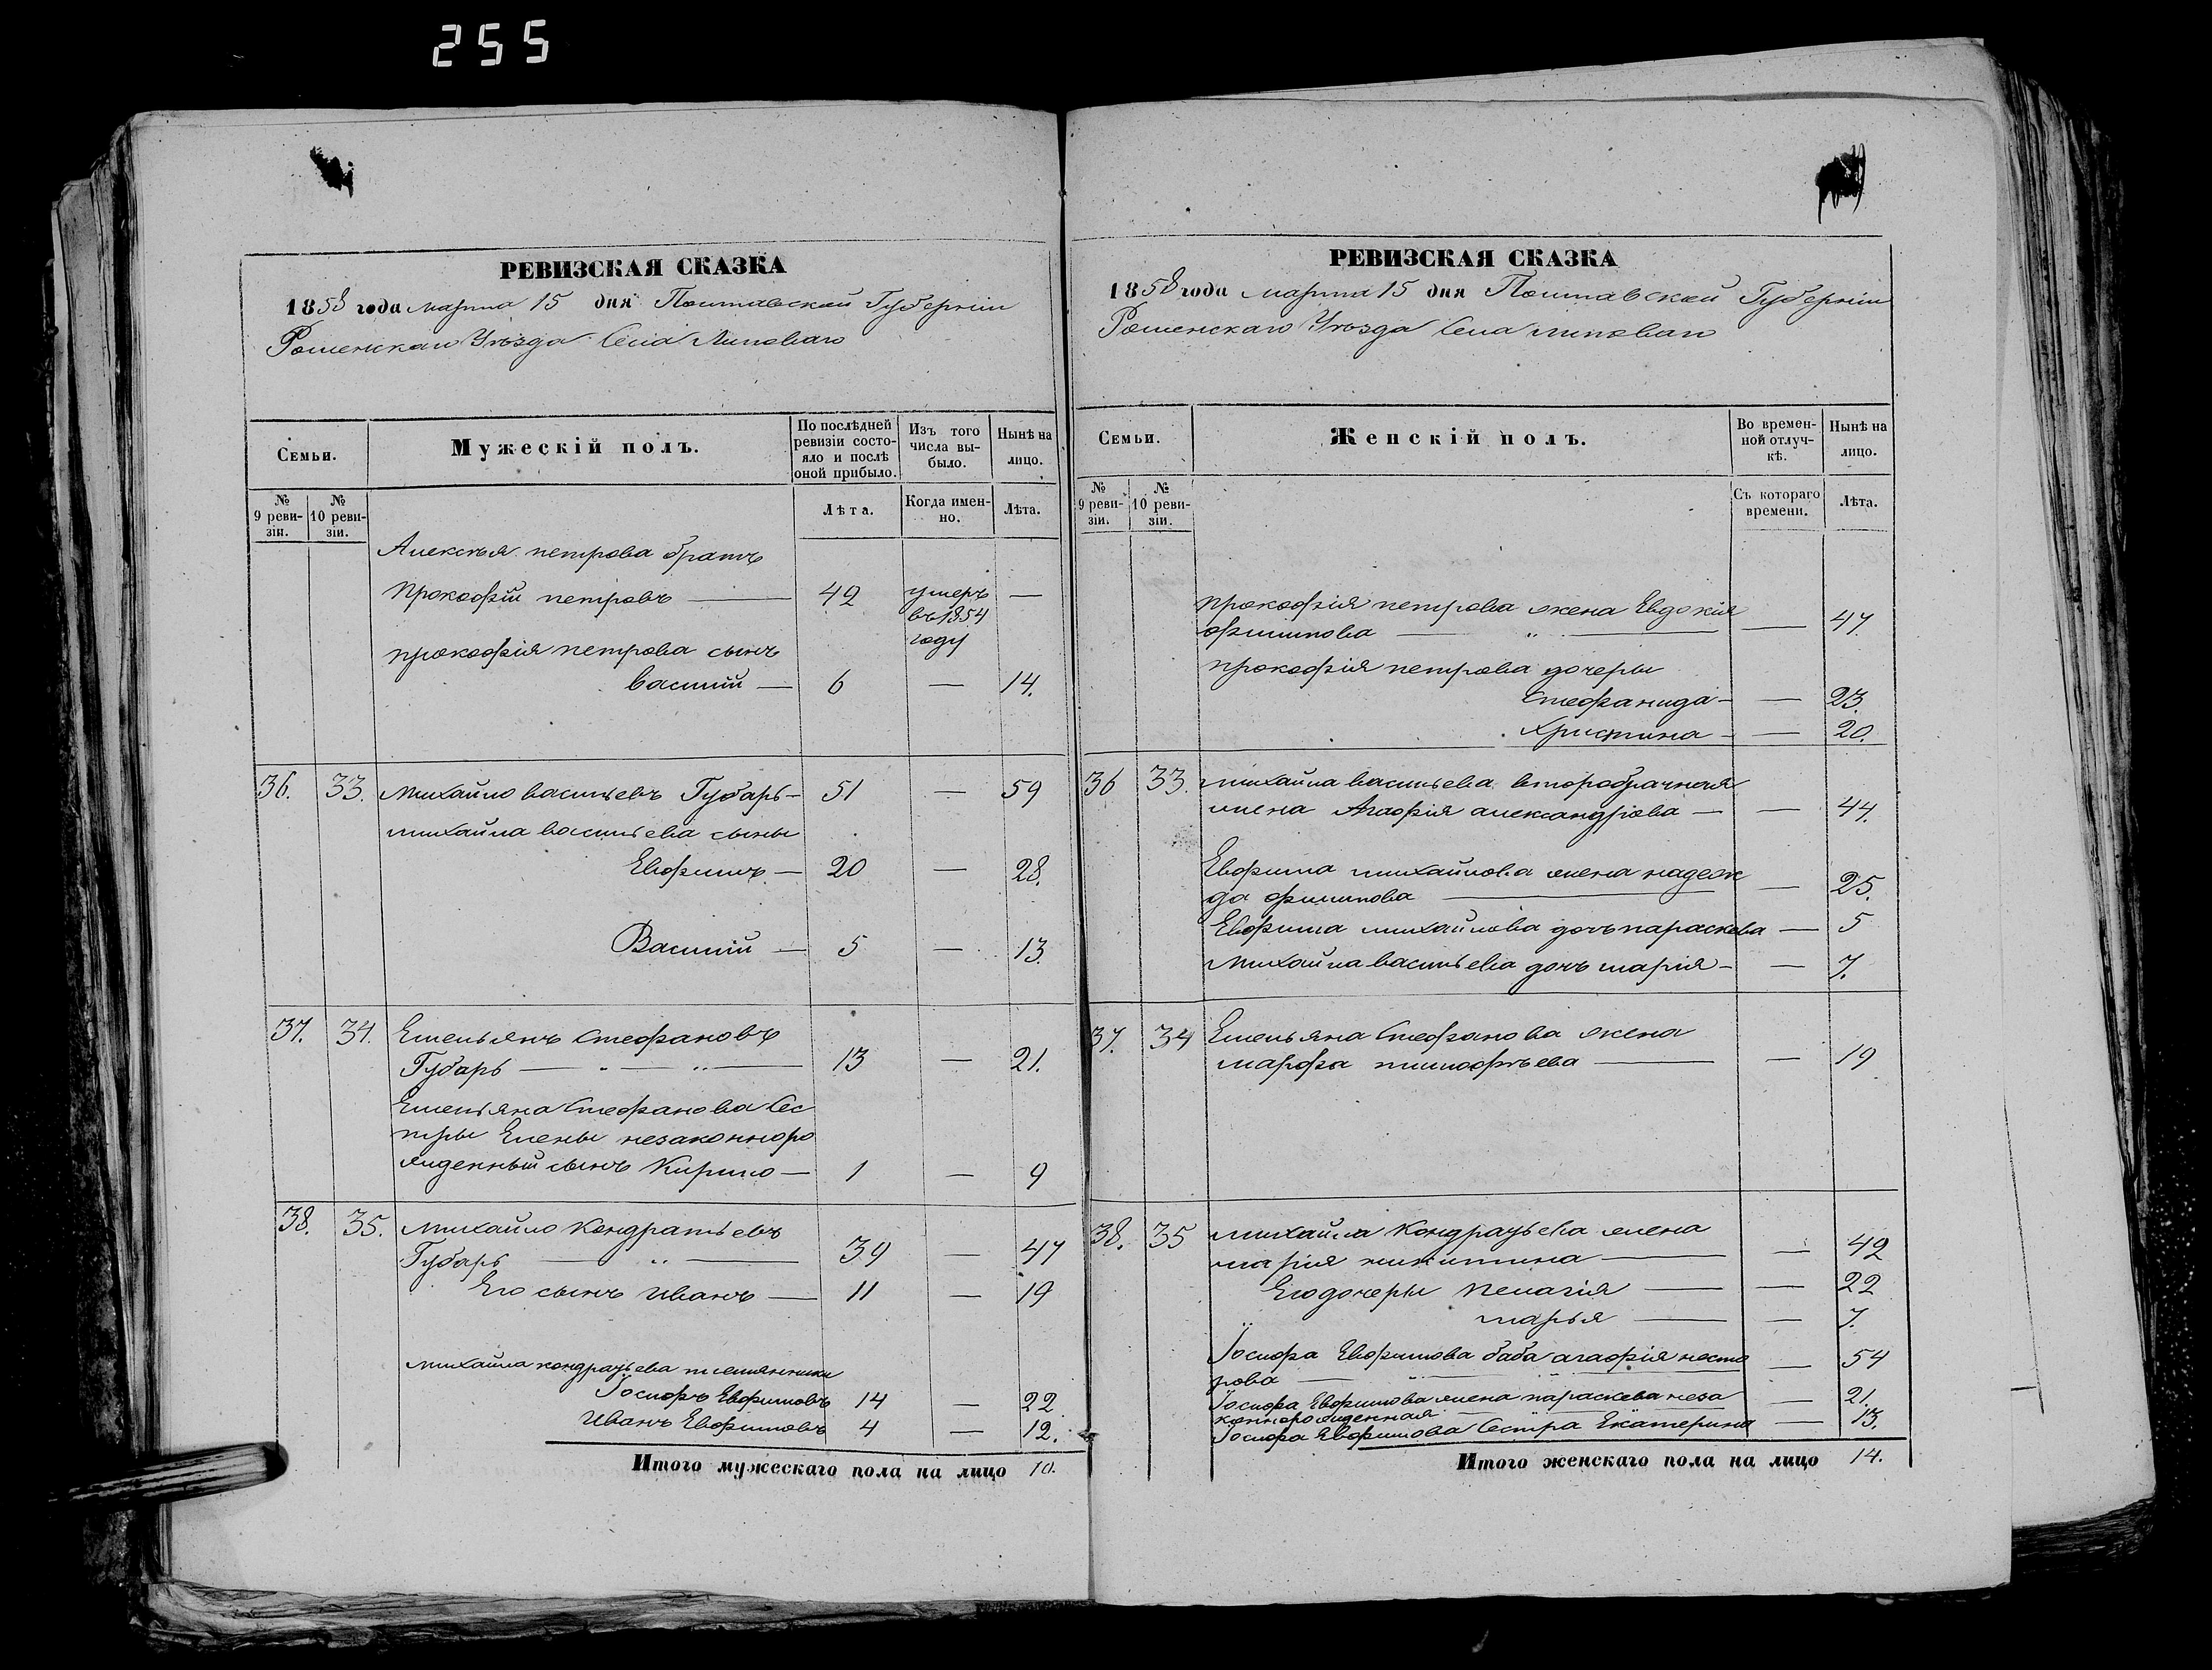 255
РЕВИЗСКАЯ СКАЗКА
1858 года марта 15 дня Полтавской Губерніи
Роменскаго Уѣзда Села Липоваго
Семьи.
Мужескій полъ.
По послѣдней ревизіи состояло и послѣ оной прибыло.
Изъ того числа выбыло.
Нынѣ на лицо.
№ 9 ревизіи.
№ 10 ревизіи.
Лѣта.
Когда именно.
Лѣта.
Алексѣя петрова братъ
Прокофій петровъ — 42 умеръ —
въ 1854
году
прокофія петрова сынъ
василій — 6 — 14.
36. 33. михайло васильевъ Губарь — 51 — 59
михайла васильева сыны
Евфимъ — 20 — 28.
Василій — 5 — 13.
37. 34. Емельянъ Стефановъ
Губарь — „ — „ — 13 — 21.
Емельяна Стефанова Сес
тры Елены незаконноро
жденный сынъ Кирило — 1 — 9
38. 35. михайло Кондратьевъ
Губарь — „ — 39 — 47
Его сынъ иванъ — 11 — 19
михайла кондратьева племянники
Іосифъ Евфимовъ 14 — 22
иванъ Евфимовъ 4 — 12.
Итого мужескаго пола на лицо 10.
РЕВИЗСКАЯ СКАЗКА
1858 года марта 15 дня Полтавской Губерніи
Роменскаго Уѣзда Села липоваго
Семьи.
Женскій полъ.
Во временной отлучкѣ.
Нынѣ на лицо.
№ 9 ревизіи.
№ 10 ревизіи.
Съ котораго времени.
Лѣта.
прокофія петрова жена Евдокія
филипова — „ — — 47.
прокофія петрова дочери
Стефанида — — 23.
Христина — — 20.
36 33. михайла васильева второбрачная
жена Агафія александрова — — 44.
Евфима михайлова жена надеж
да филипова — — 25.
Евфима михайлова дочь параскева — 5
Михайла васильева дочь марія — — 7.
37. 34 Емельяна Стефанова жена
марфа тимофѣева — — 19
38. 35 михайла Кондратьева жена
марія никитина — — 42
Его дочери пелагія — — 22
марья — — 7.
Іосифа Евфимова баба агафія несто
рова — — 54
Іосифа Евфимова жена параскева неза
коннорожденная — 21.
Іосифа Евфимова Сестра Екатерина — 13.
Итого женскаго пола на лицо 14.